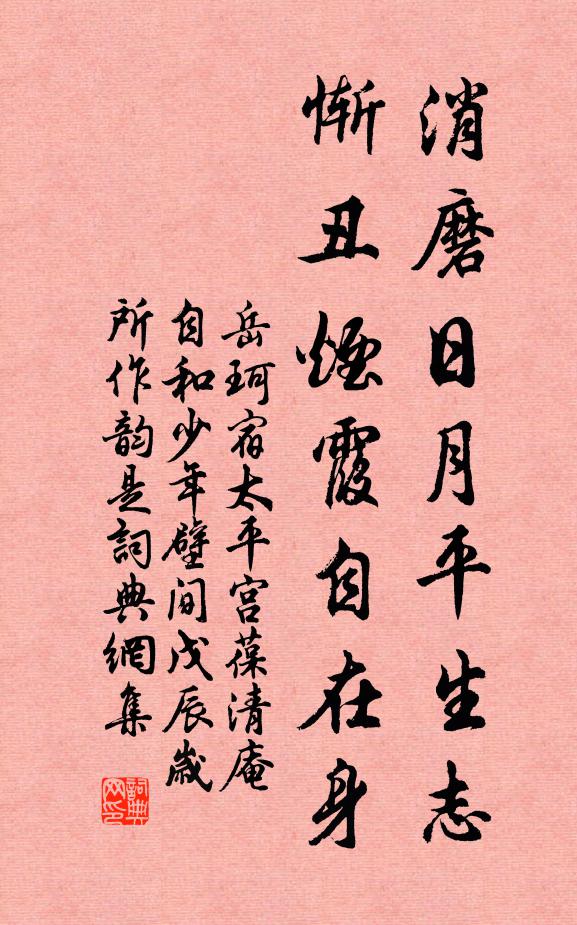 消磨日月平生志
惭丑烟霞自在身
岳珂宿太平宫葆清庵
自和少年壁间戊辰岁
所作韵是詞典網集
詞典网印